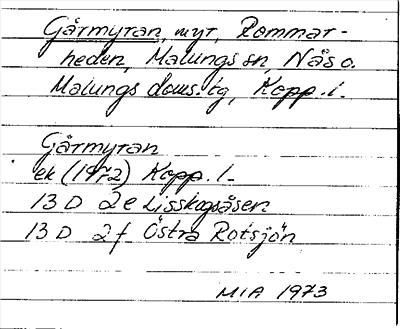 Gårmyran, myr, Rommar-
heden, Malungs sn, Nås o.
Malungs doms.tg, Kopp.l.
Gårmyran
ek (1972) Kopp.l.
13 D 2e Lisskogsåsen
13 D 2f Östra Rotsjön
MIA 1973